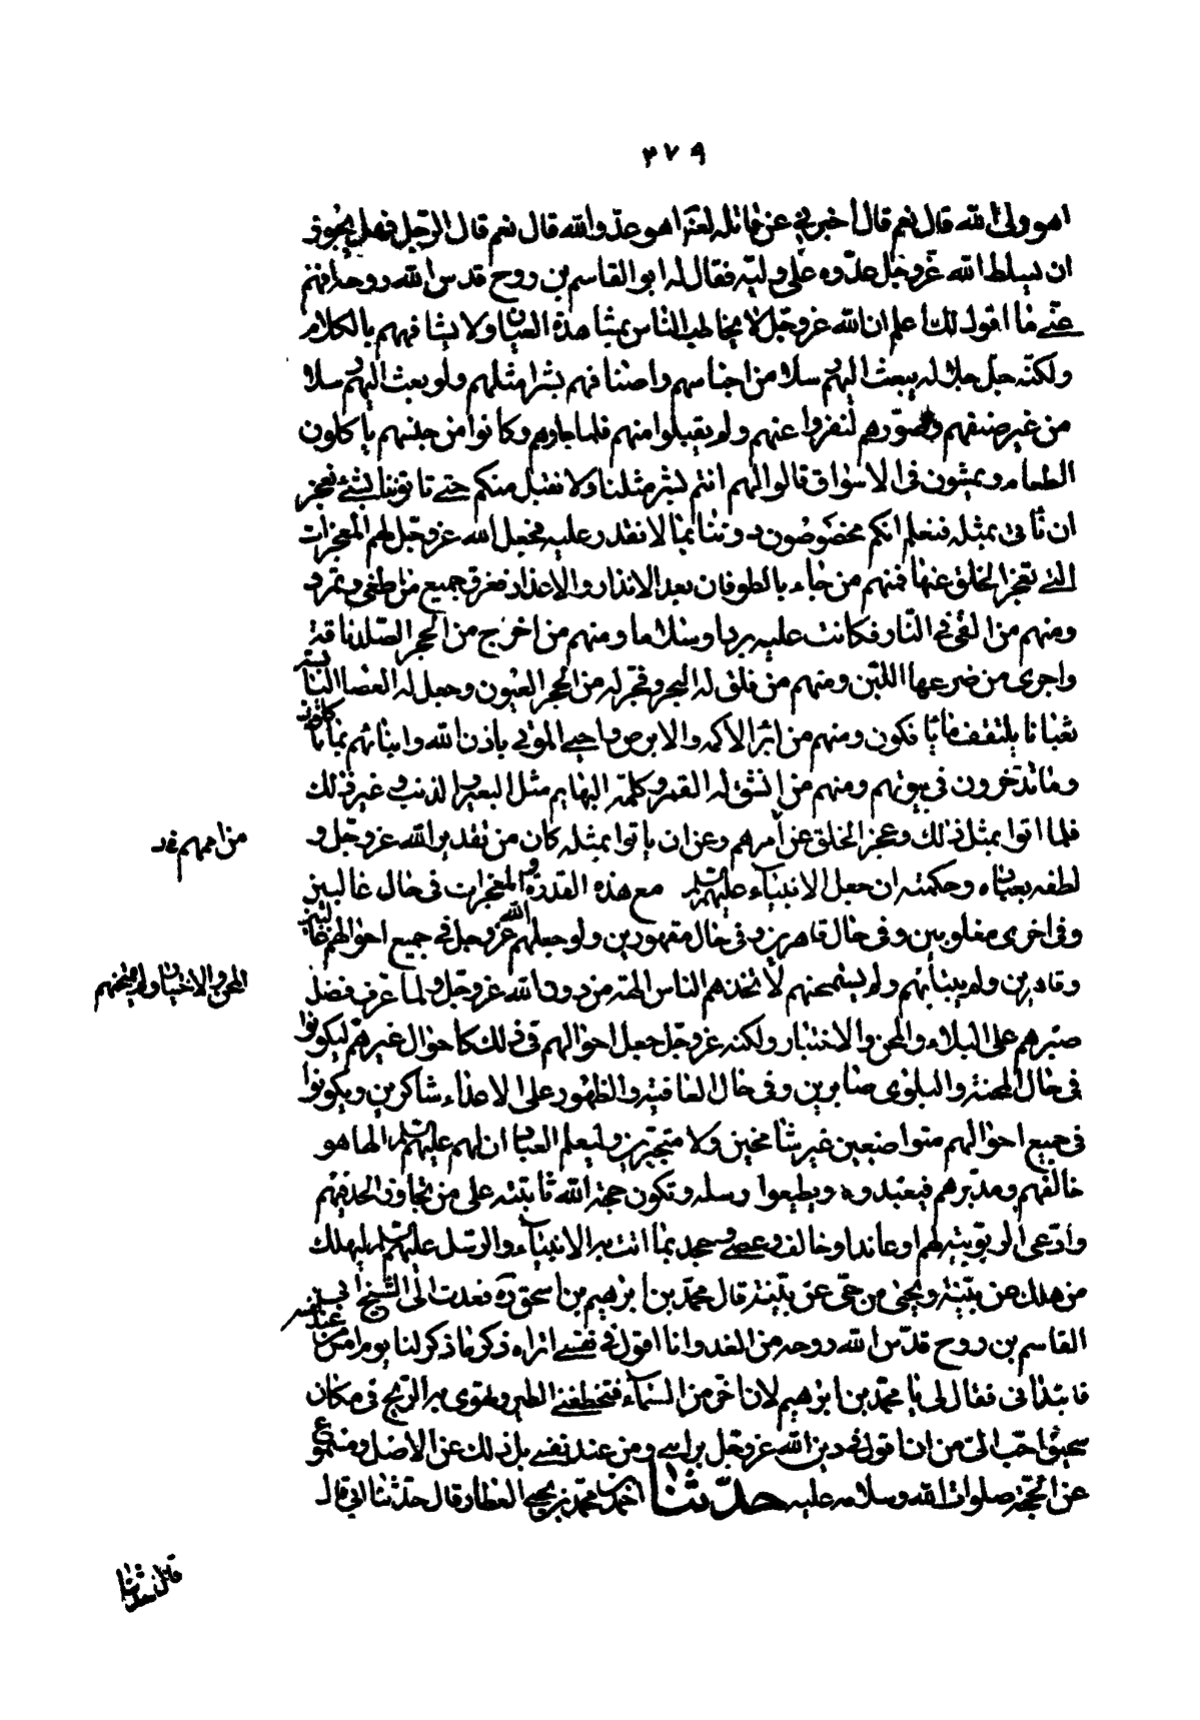 ٢٧٩
اهو ولى الله قال نعم قال أخبرني عن قاتله لعنه الله اهو عدو الله قال نعم قال الرجل فهل يجوز
ان يسلط الله عز وجل عدوه على وليه فقال له ابو القاسم بن روح قدس الله روحه افهم
عنى ما اقول لك اعلم ان الله عز وجل لا يخاطب الناس بمشاهدة العيان ولا يشافههم بالكلام
ولكنه جل جلاله يبعث اليهم رسلا من اجناسهم واصنافهم بشرا مثلهم ولو بعث اليهم رسلا
من غير صنفهم وصورهم لنفروا عنهم ولم يقبلوا منهم فلما جاؤهم وكانوا من جنسهم ياكلون
الطعام ويمشون فى الاسواق قالوا لهم انتم بشر مثلنا ولا نقبل منكم حتى تاتوننا بشىء نعجز
ان ناتى بمثله فنعلم انكم مخصوصون دوننا بما لا نقدر عليه فجعل الله عز وجل لهم المعجزات
التى يعجز الخلق عنها فمنهم من جاء بالطوفان بعد الانذار والاعذار فغرق جميع من طغى وتمرد
ومنهم من القى فى النار فكانت عليه بردا وسلاما ومنهم من اخرج من الحجر الصلد ناقة
واجرى من ضرعها اللبن ومنهم من فلق له البحر وفجر له من الحجر العيون وجعل له العصا اليابسة
ثعبانا يلتقف ما يافكون ومنهم من ابرأ الاكمه والابرص واحيى الموتى باذن الله وانبأئهم بما ياكلون
وما تدخرون فى بيوتهم ومنهم من انشق له القمر وكلمته البهايم مثل البعير والذئب وغير ذلك
فلما اتوا بمثل ذلك وعجز الخلق عن أمرهم وعن ان ياتوا بمثله كان من تقدير الله عز وجل و
من اممهم قد
لطفه بعباده وحكمته ان جعل الانبيآء عليهم السلم مع هذه القدرة والمعجزات فى حال غالبين
وفى اخرى مغلوبين وفى حال قاهرين وفى حال مقهورين ولو جعلهم الله عز وجل فى جميع احوالهم غالبين
وقاهرين ولم يبتلهم ولم يمتحنهم لاتخذهم الناس الهة من دون الله عز وجل ولما عرف فضل
المحن والاختبار ولم يمتحنهم
صبرهم على البلاء والمحن والاختبار ولكنه عز وجل جعل احوالهم فى ذلك كاحوال غيرهم ليكونوا
فى حال المحنة والبلوى صابرين وفى حال العافية والظهور على الاعداء شاكرين ويكونوا
فى جميع احوالهم متواضعين غير شامخين ولا متجبرين وليعلم العباد ان لهم عليهم السلم الها هو
خالقهم ومدبرهم فيعبدوه ويطيعوا رسله وتكون حجة الله ثابتة على من تجاوز الحد فيهم
وادعى الربوبية لهم او عاند او خالف وعصى وجحد بما اتت به الانبيآء والرسل عليهم السلم ليهلك
من هلك عن بينة ويحيى من حى عن بينة قال محمد بن ابرهيم بن اسحق ره فعدت الى الشيخ ابى
القاسم بن روح قدس الله روحه من الغد وانا اقول فى نفسى اتراه ذكر ما ذكر لنا يوم امس من عند نفسه
فابتدانى فقال لى يا محمد بن ابرهيم لان اخر من السمآء فتخطفنى الطير او تهوى به الريح فى مكان
سحيق احب الى من ان اقول فى دين الله عز وجل برايى ومن عند نفسى بل ذلك عن الاصل ومسموع
عن الحجة صلوات الله وسلامه عليه حدثنا احمد بن محمد بن يحيى العطار قال حدثنا ابى قال